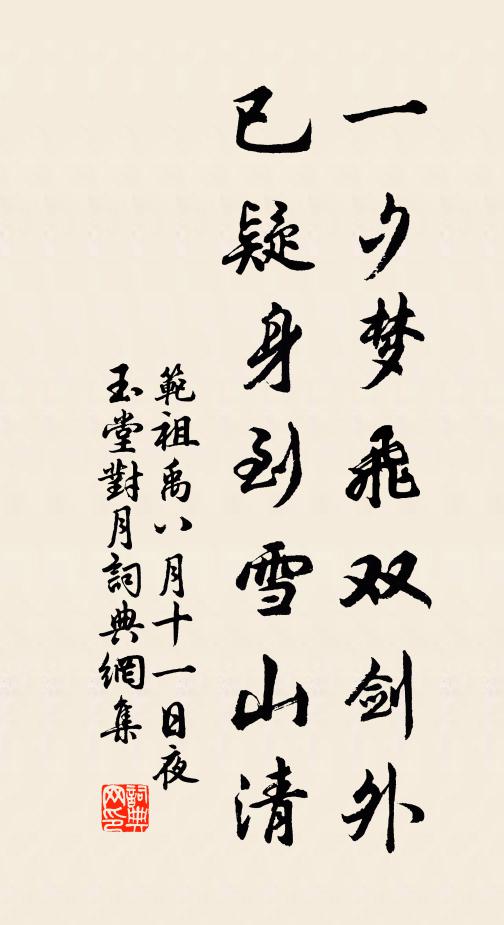 一夕梦飛双剑外
已疑身到雪山清
範祖禹八月十一日夜
玉堂對月詞典網集
詞典网印